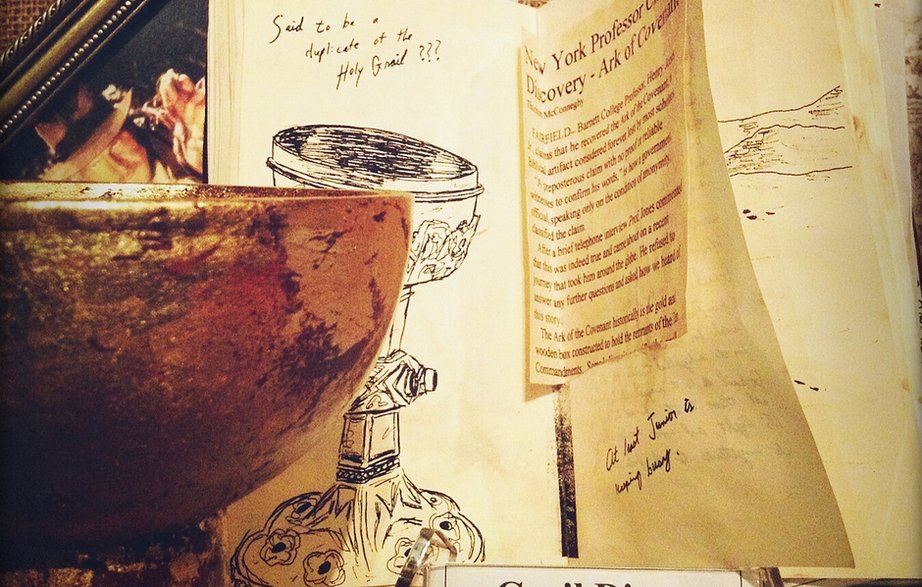 Said to be a
duplicate of the
Holy Grail ???
New York Professor
Discovery - Ark of Covenant
McConnegby
FAIRFIELD-- Barnett College Professor, Henry Jones
claims that he recovered the Ark of the Covenant,
artifact considered forever lost by most scholars
"A preposterous claim with no proof or reliable
witnesses to confirm his words," is how a government
official, speaking only on the condition of anonymity,
classified the claim.
After a brief telephone interview Prof. Jones commented
that this was indeed true and came about on a recent
journey that took him around the globe. He refused to
answer any further questions and asked how we heard of
this story.
The Ark of the Covenant historically is the gold and
wooden box constructed to hold the remnants of the
Commandments.
At last Junior is
keeping busy.
Grail